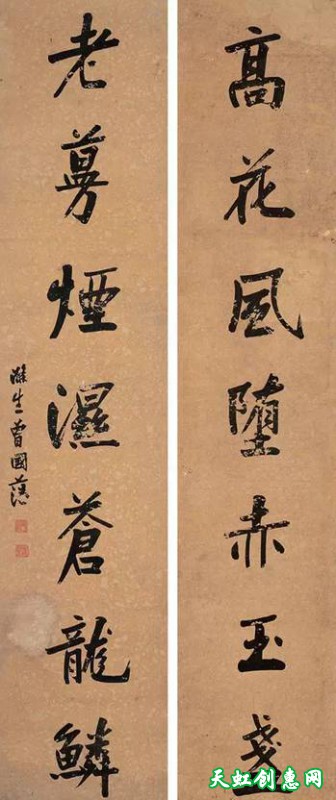 高花風堕赤玉盞
老蔓煙濕蒼龍鱗
滌生曾國藩
天虹创惠网